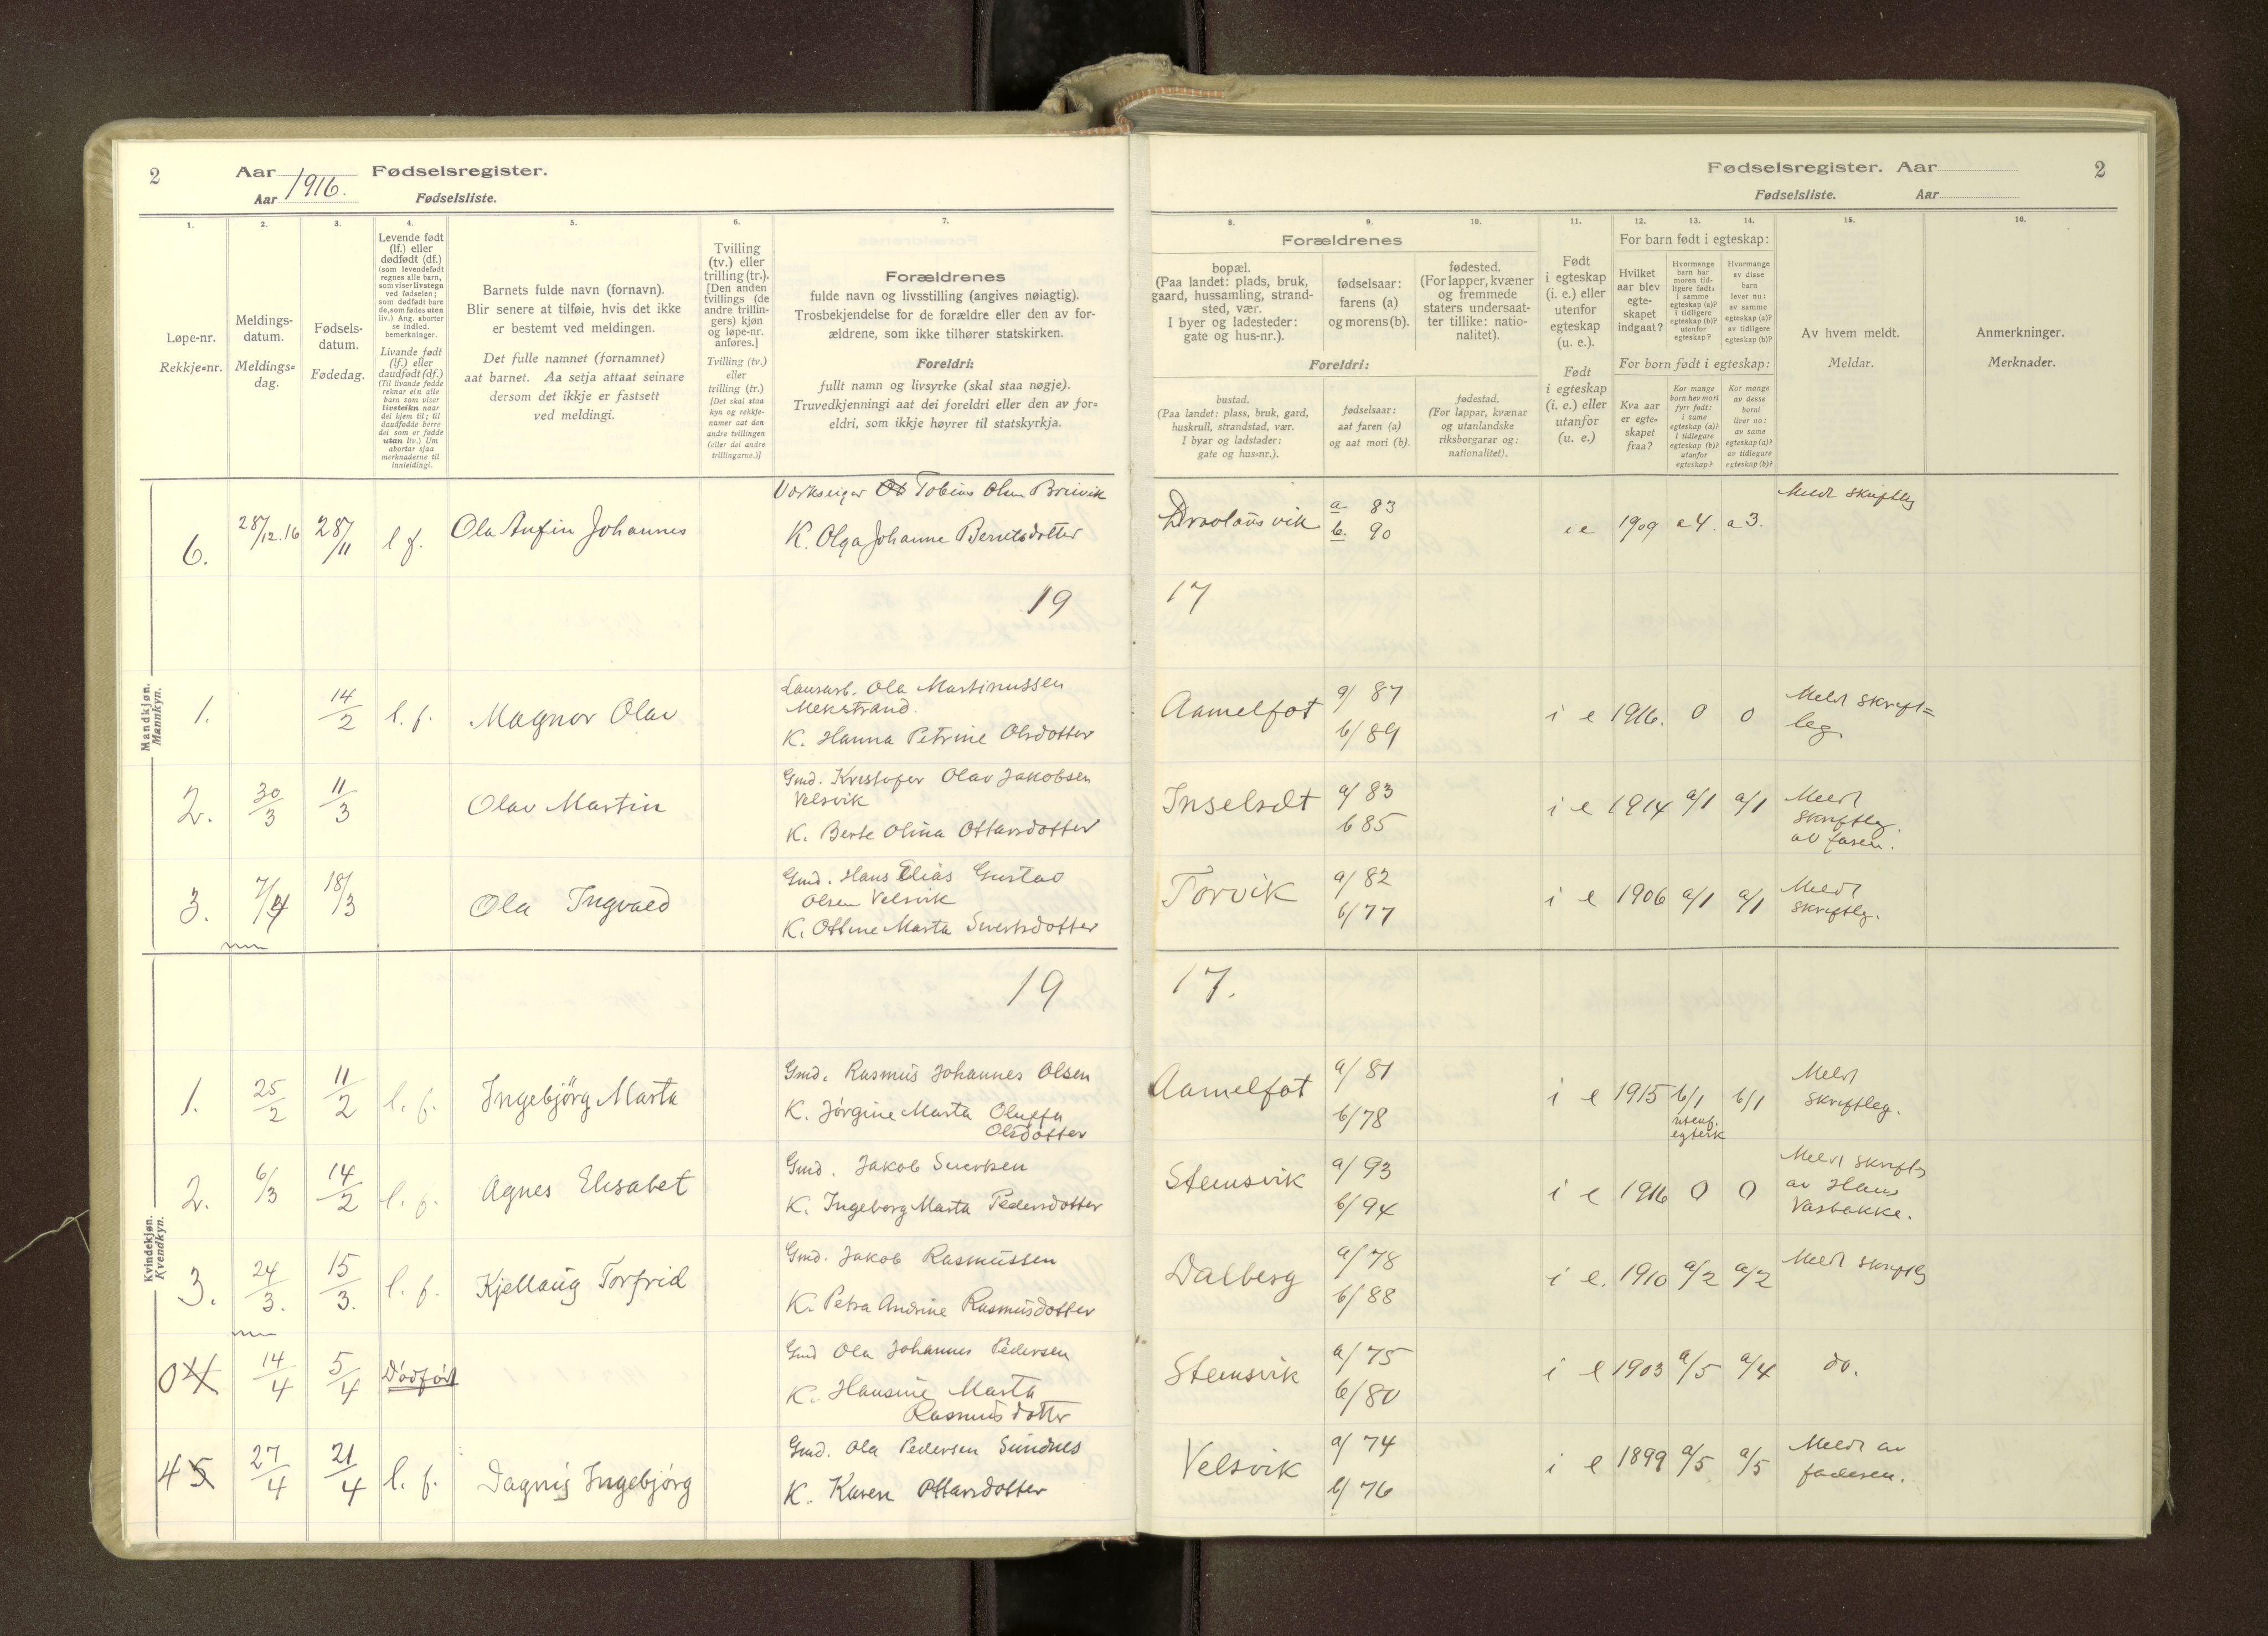 2
Aar 1916. Fødselsregister.
Aar Fødselsliste.
1.
2.
3.
4.
5.
6.
7.
Løpe-nr.
Rekkje-nr.
Meldings-
datum.
Meldings-
dag.
Fødsels-
datum.
Fødedag.
Levende født
(lf.) eller
dødfødt (df.)
(som levendefødt
regnes alle barn,
som viser livstegn
ved fødselen;
som dødfødt bare
de, som fødes uten
liv.) Ang. aborter
se indled.
bemerkninger.
Livande født
(lf.) eller
daudfødt (df.)
(Til livande fødde
reknar ein alle
barn som viser
livsteikn naar
dei kjem til; til
daudfødde berre
dei som er fødde
utan liv.) Um
abortar sjaa
merknaderne til
innleidingi.
Barnets fulde navn (fornavn).
Blir senere at tilføie, hvis det ikke
er bestemt ved meldingen.
Det fulle namnet (fornamnet)
aat barnet. Aa setja attaat seinare
dersom det ikkje er fastsett
ved meldingi.
Tvilling
(tv.) eller
trilling (tr.).
[Den anden
tvillings (de
andre trillin-
gers) kjøn
og løpe-nr.
anføres.]
Tvilling (tv.)
eller
trilling (tr.)
[Det skal staa
kyn og rekkje-
numer aat den
andre tvillingen
(eller dei andre
trillingarne.)]
Forældrenes
fulde navn og livsstilling (angives nøiagtig).
Trosbekjendelse for de forældre eller den av for-
ældrene, som ikke tilhører statskirken.
Foreldri:
fullt namn og livsyrke (skal staa nøgje).
Truvedkjenningi aat dei foreldri eller den av for-
eldri, som ikkje høyrer til statskyrkja.
Mandkjøn.
Mannkyn.
6. 28/12.16 28/11 l f. Ola Anfin Johannes
Verkseigar Tobias Olsen Breivik
K. Olga Johanne Berntsdotter
19
1. 14/2 l. f. Magnor Olav
Ola Martinussen
Mekstrand.
K. Hanna Petrine Olsdotter
2. 30/3 11/3 Olav Martin
Gmd. Kristofer Olav Jakobsen
Velsvik
K. Berte Olina Ottarsdotter
3. 7/4 18/3 Ola Ingvald
Gmd. Hans Elias Gustav
Olsen Velsvik
K. Ottine Marta Sivertsdotter
Kvindekjøn.
Kvendkyn.
19
1. 25/2 11/2 l. f. Ingebjörg Marta
Gmd. Rasmus Johannes Olsen
K. Jørgine Marta Oluffa
Olsdotter
2. 6/3 14/2 l. f. Agnes Elisabet
Gmd. Jakob Sivertsen
K. Ingeborg Marta Pedersdotter
3. 24/3. 15/3. l. f. Kjellaug Torfrid
Gmd. Jakob Rasmussen
K. Petra Andrine Rasmusdotter
04 14/4 5/4 Dódfódt
Gmd Ola Johannes Pedersen
K. Hansine Marta
Rasmusdotter
4 5 27/4 21/4 l. f. Dagnis Ingebjórg
Gmd. Ola Pedersen Sundnes
K. Karen Ottarsdotter
Fødselsregister. Aar
2
Fødselsliste. Aar
8.
9.
10.
11.
12.
13.
14.
15.
16.
Forældrenes
bopæl.
(Paa landet: plads, bruk,
gaard, hussamling, strand-
sted, vær.
I byer og ladesteder:
gate og hus-nr.).
fødselsaar:
farens (a)
og morens (b).
fødested.
(For lapper, kvæner
og fremmede
staters undersaat-
ter tillike: natio-
nalitet).
Foreldri:
bustad.
(Paa landet: plass, bruk, gard,
huskrull, strandstad, vær.
I byar og ladstader:
gate og hus-nr.).
fødselsaar:
aat faren (a)
og aat mori (b).
fødestad.
(For lappar, kvænar
og utanlandske
riksborgarar og:
nationalitet).
Født
i egteskap
(i. e.) eller
utenfor
egteskap
(u. e.).
Født
i egteskap
(i. e.) eller
utanfor
(u. e.)
For barn født i egteskap:
Hvilket
aar blev
egte-
skapet
indgaat?
Hvormange
barn har
moren tid-
ligere født:
i samme
egteskap (a)?
i tidligere
egteskap (b)?
utenfor
egteskap?
Hvormange
av disse
barn
lever nu:
av samme
egteskap (a)?
av tidligere
egteskap (b)?
For born født i egteskap:
Kva aar
er egte-
skapet
fraa?
Kor mange
born hev mori
fyrr født:
i same
egteskap (a)?
i tidlegare
egteskap (b)?
utanfor
egteskap?
Kor mange
av desse
borni
liver no:
av same
egteskap (a)?
av tidlegare
egteskap (b)?
Av hvem meldt.
Meldar.
Anmerkninger.
Merknader.
a 83
b. 90
i e 1909 a 4. a 3.
Meldt skriftleg
17
Aamelfot
a/ 87
b/ 89
i e 1916. 0 0
Meldt skrift=
leg.
Inselset
a/ 83
b 85
i e 1914 a/1 a/1
Meldt
skriftleg.
av faren.
Torvik
a/ 82
b/77
i e 1906 a/1 a/1
Meldt
skriftlg.
17.
Aamelfot
a/ 81
b/78
i e 1915 b/1 b/1
utenf.
egtesk
Meldt
skriftleg.
Stemsvik
a/ 93
b/94
i e 1916 0 0
Meldt skriftlg
av Hans
Vasbakke.
Dalberg
a/78
b/88
i e. 1910 a/2 a/2
Meldt skriftlg
Stemsvik
a/75
b/80
i e 1903 a/5 a/4
do.
Velsvik
a/ 74
b/ 76
i e 1899 a/5 a/5
Meldt av
faderen.